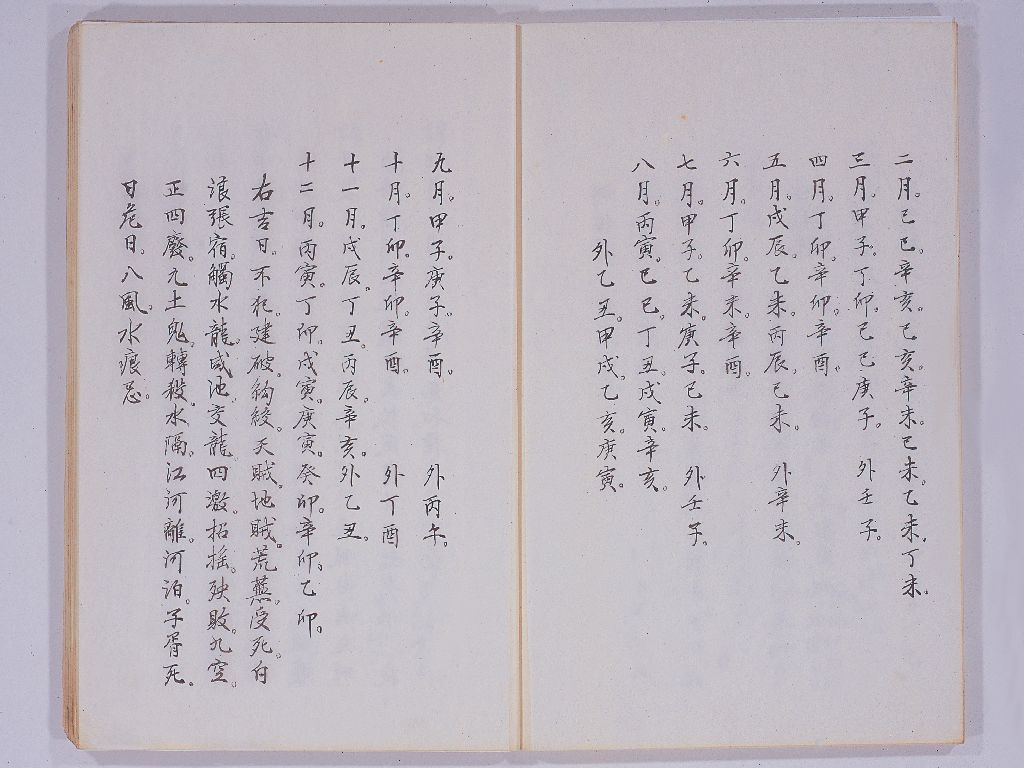 二月。己巳。辛亥。己亥。辛未。己未。乙未。丁未。
三月。甲子。丁卯。己巳。庚子。 外壬子。
四月。丁卯。辛卯。辛酉。
五月。戊辰。乙未。丙辰。己未。 外辛未。
六月。丁卯。辛未。辛酉。
七月。甲子。乙未。庚子。己未。 外壬子。
八月。丙寅。己巳。丁丑。戊寅。辛亥。
外乙丑。甲戌。乙亥。庚寅。
九月。甲子。庚子。辛酉。 外丙午。
十月。丁卯。辛卯。辛酉。 外丁酉
十一月。戊辰。丁丑。丙辰。辛亥。外乙丑。
十二月。丙寅。丁卯。戊寅。庚寅。癸卯。辛卯。乙卯。
右吉日。不犯。建破。鈎絞。天賊。地賊。荒蕪。受死。白
浪。張宿。觸水龍。咸池。交龍。四激。招搖。殃敗。九空。
正四廢。九土鬼。轉殺。水隔。江河離。河泊。子胥死。
日危日。八風。水痕忌。